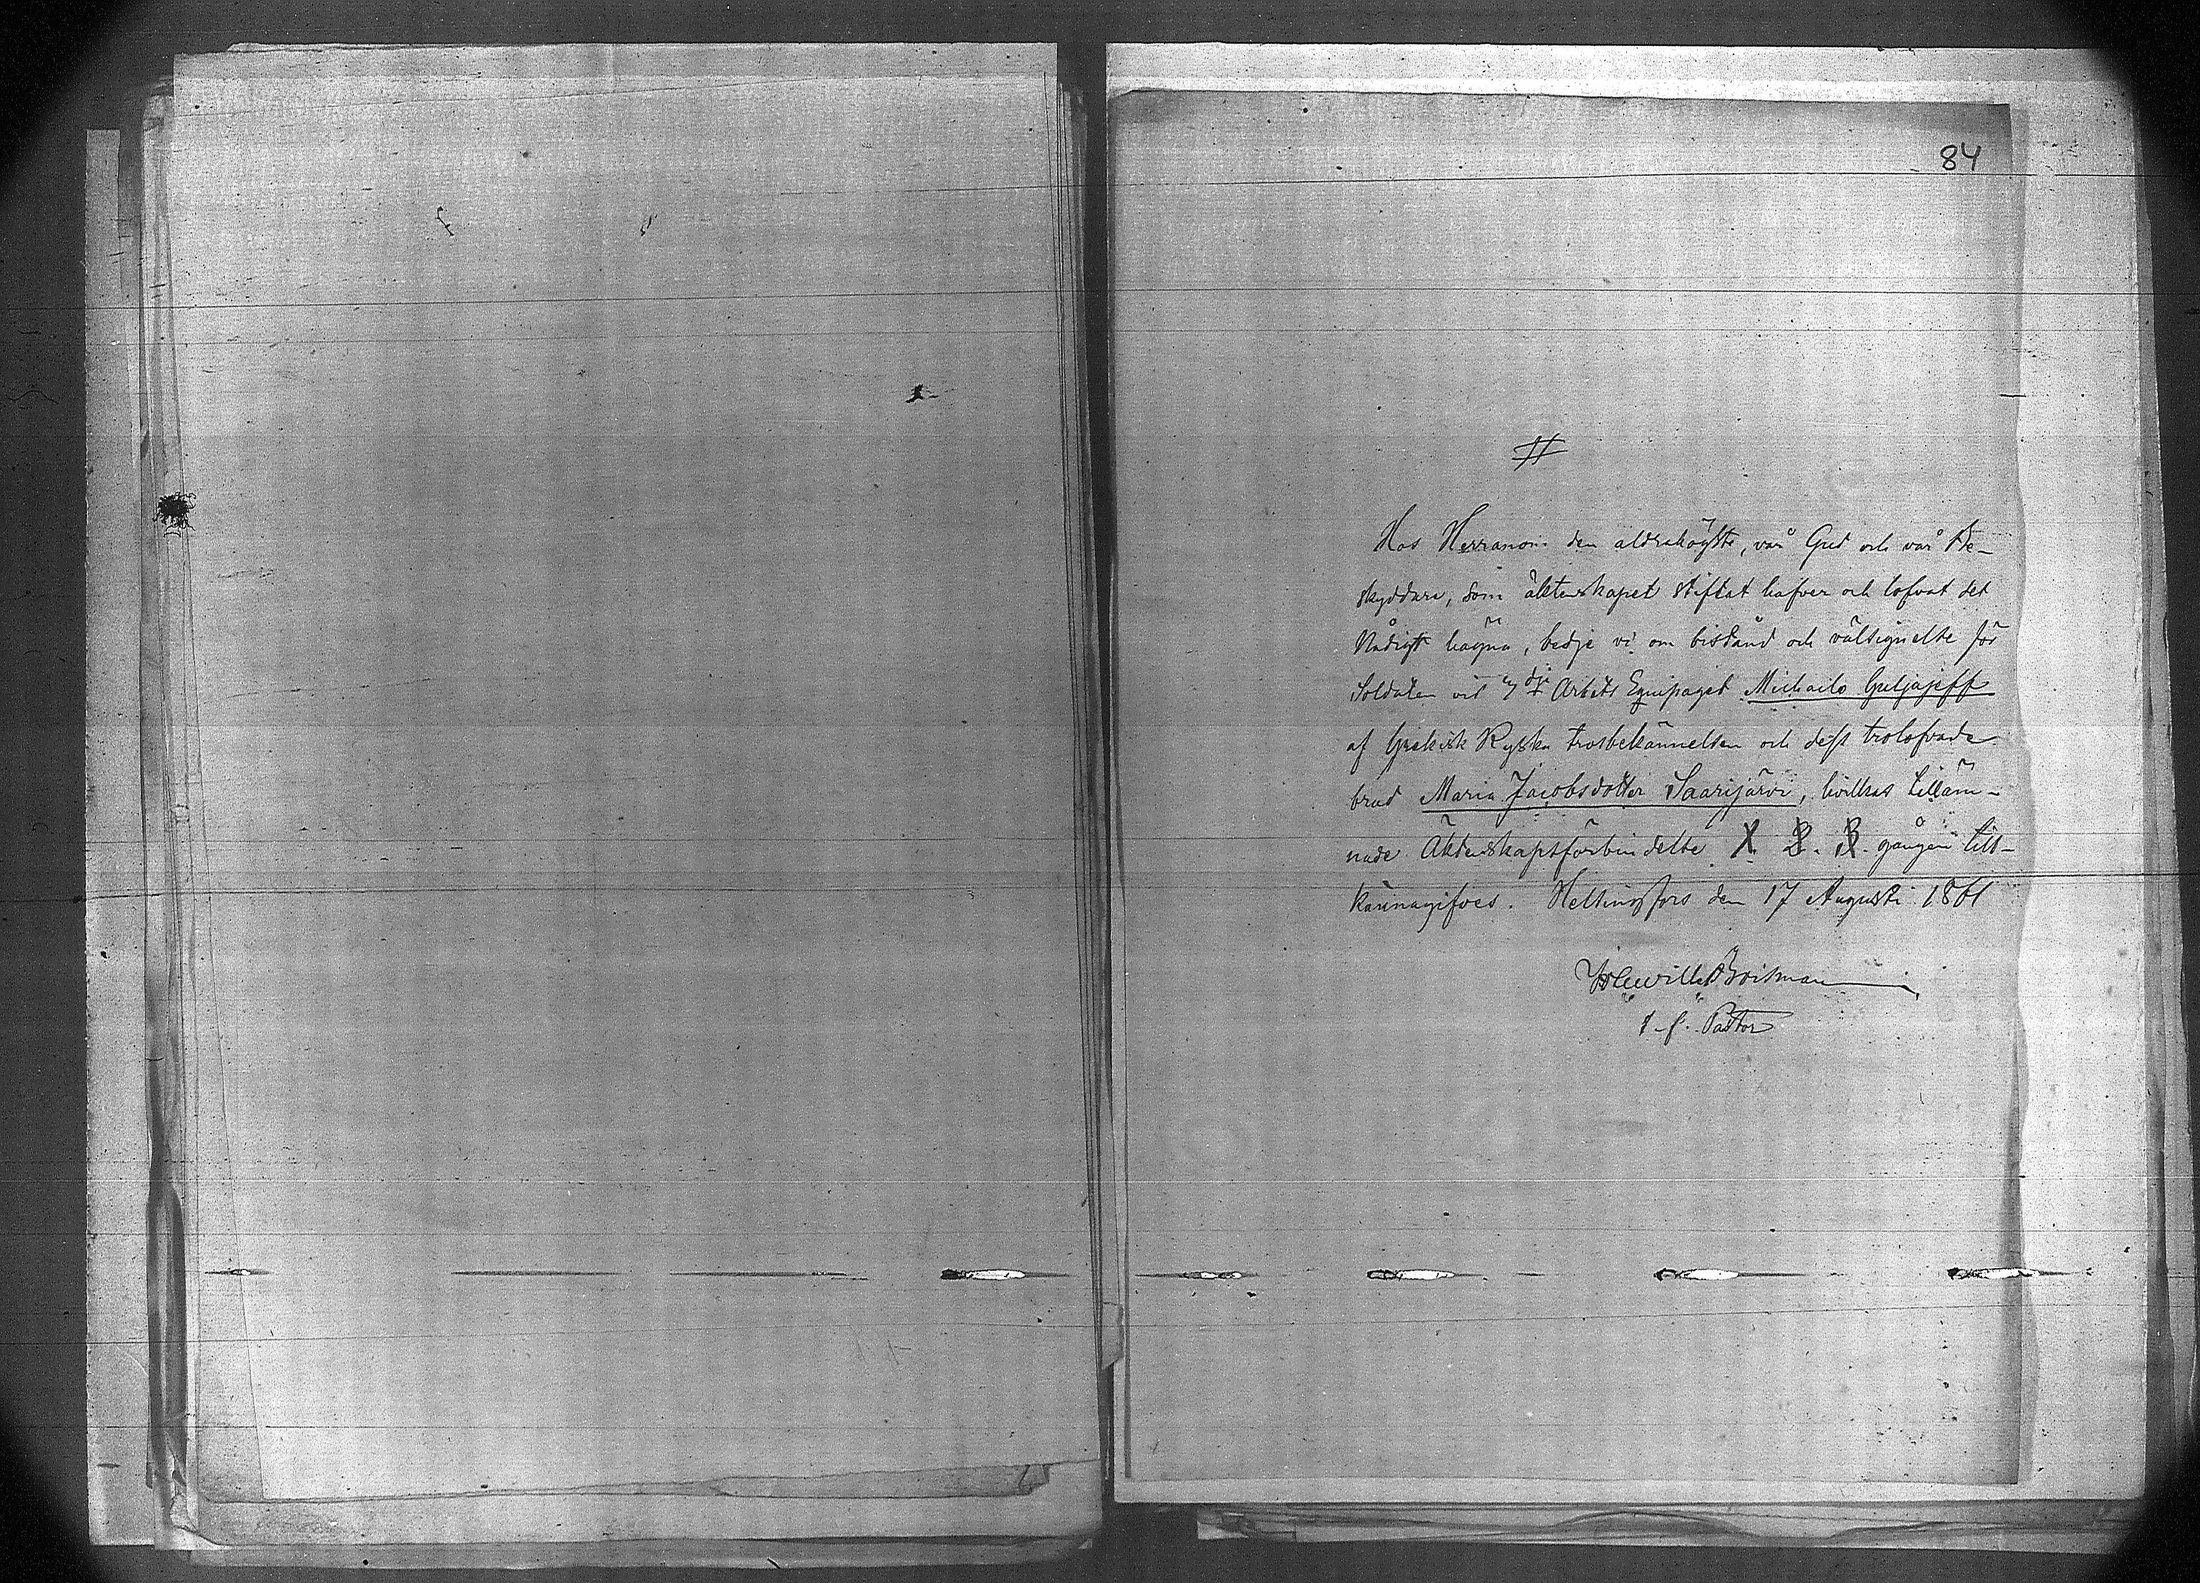 84
Hos Herranom den aldrahögste, vår Gud och vår Be-
skyddare, som äktenskapet stiftat hafver och lofvat det
Nådigt hägna, bedje vi om bistånd och välsignelse för
Soldaten vid 7dje Arbets Equipaget Michailo Guljajeff
af Grekisk Ryska trosbekännelsen och dess trolofvade
brud Maria Jacobsdotter Saarijärvi, hvilkas tilläm-
nade Äktenskapsförbindelse 1. 2. 3. gången till-
kännagifves. Helsingfors den 17 Augusti 1861
t. f. Pastor